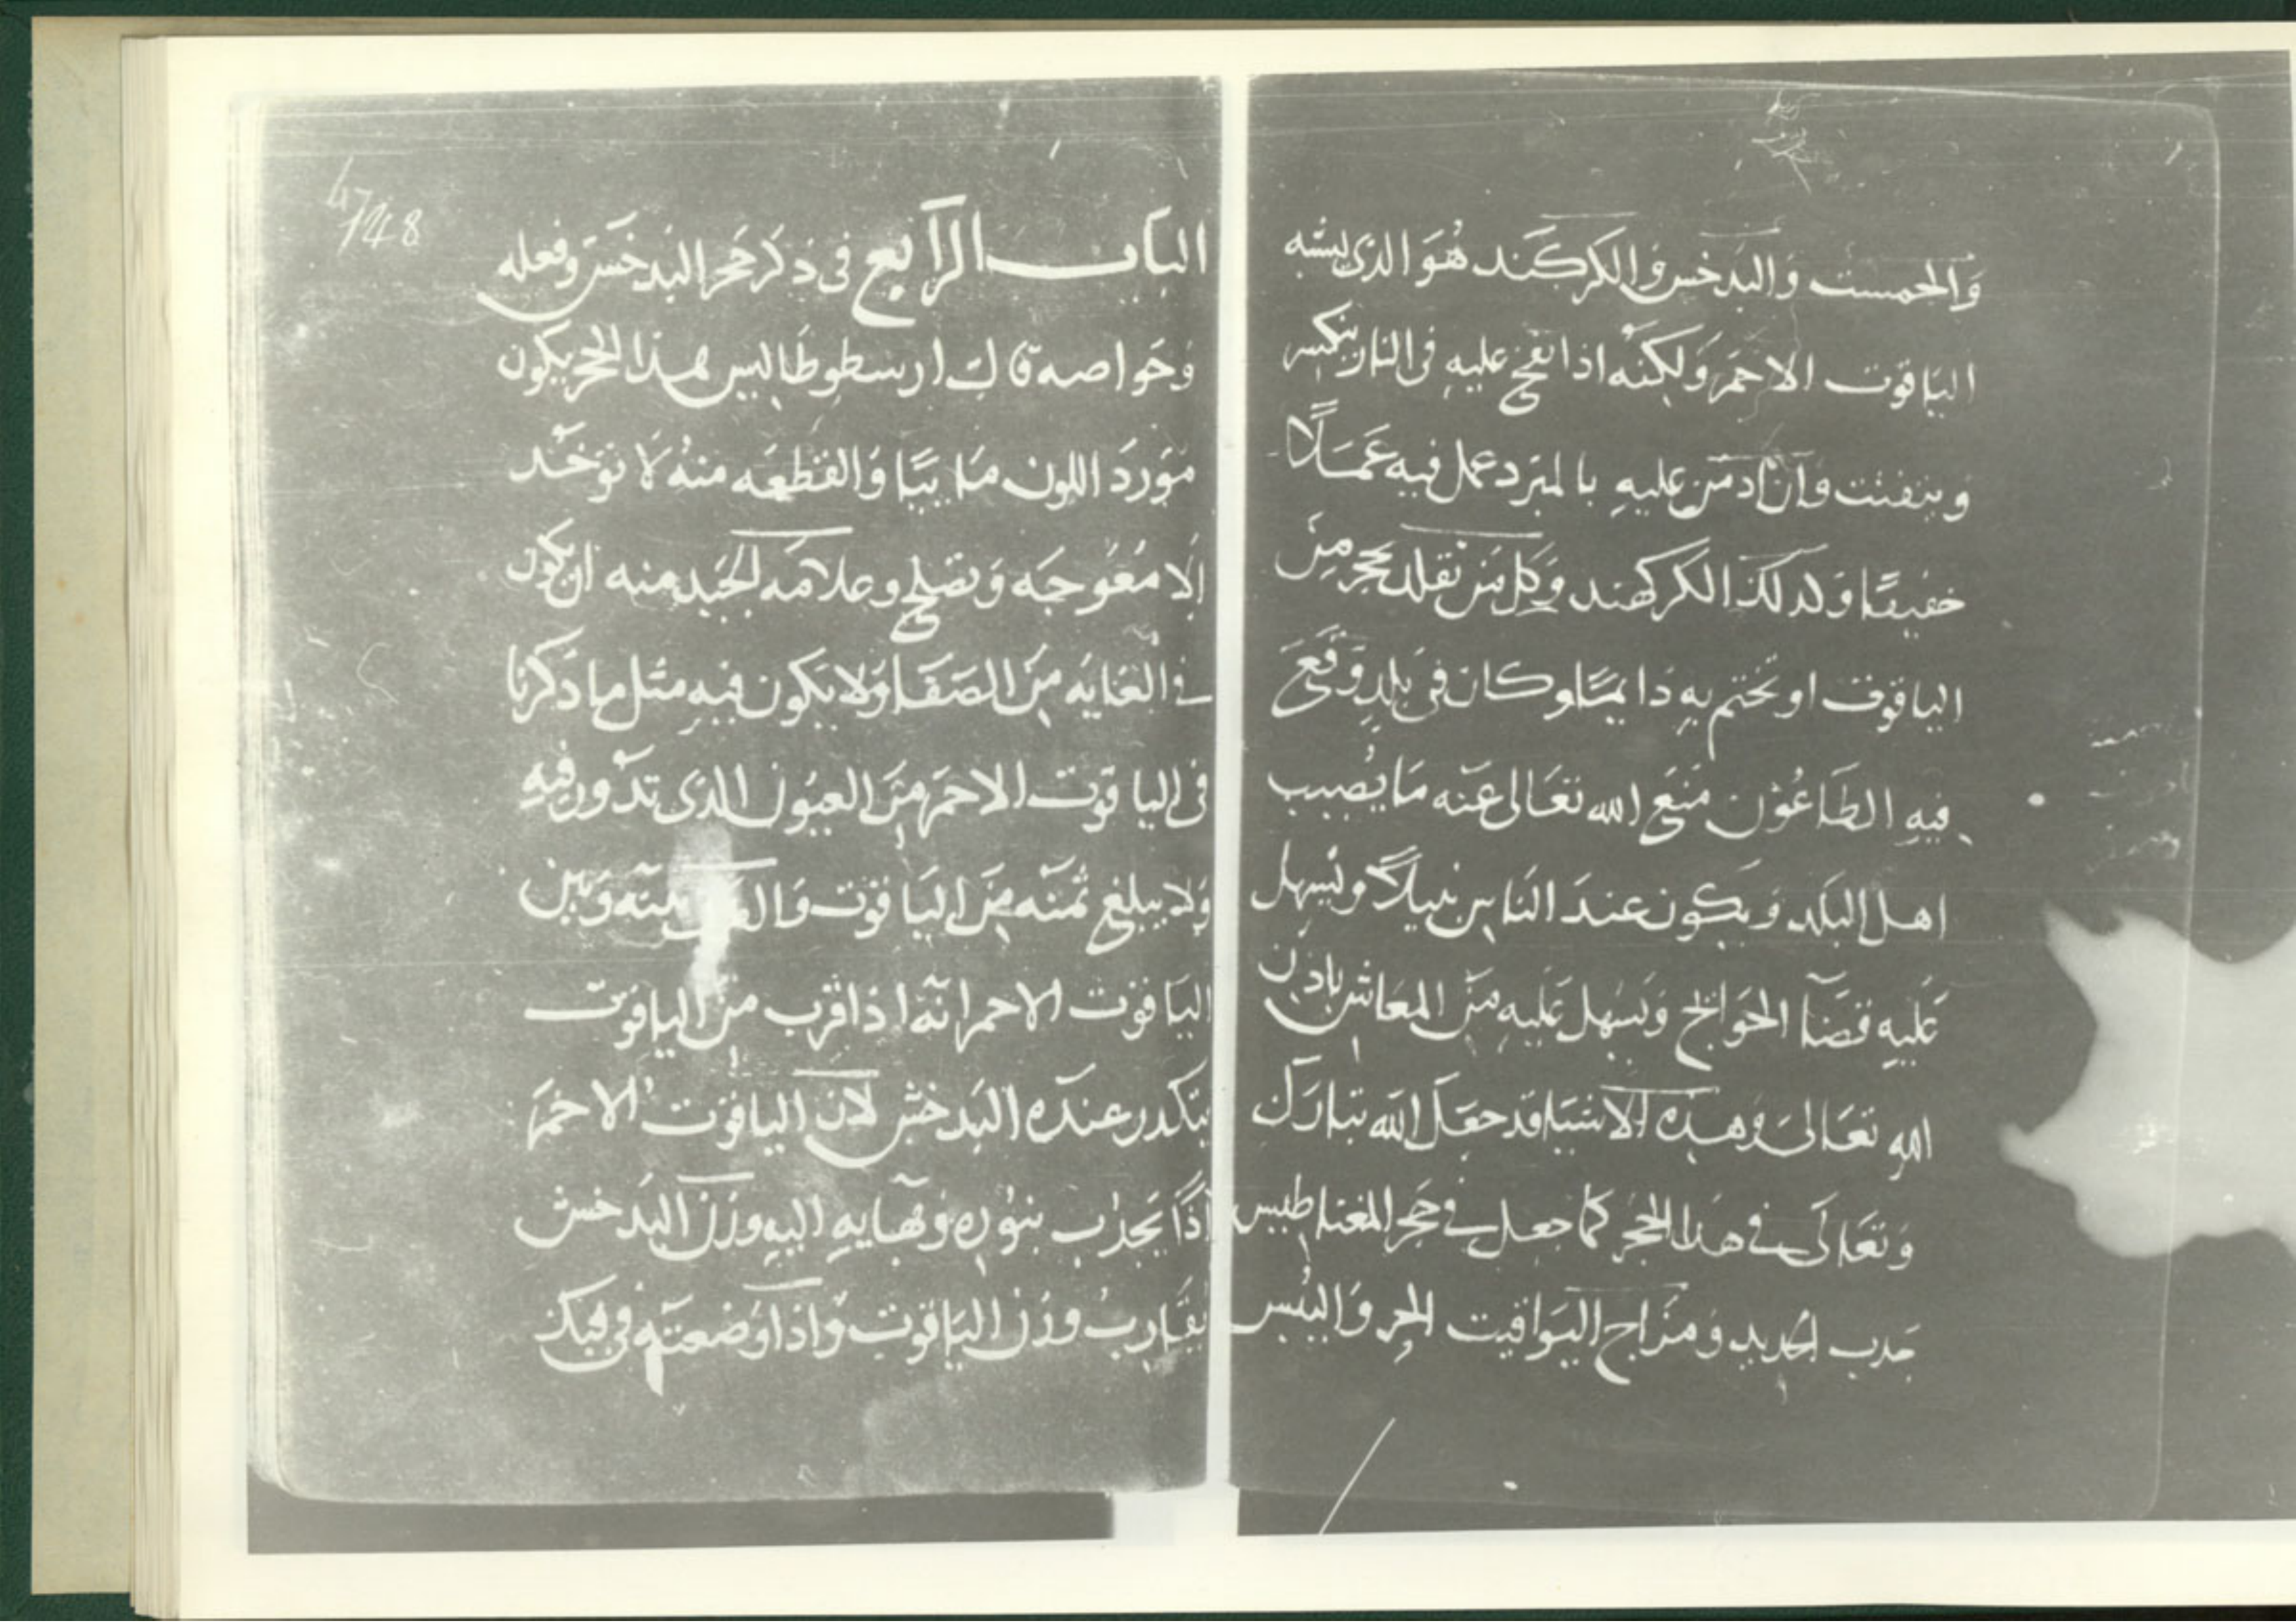 والجمست والبدخس والكركند هو الذي يشبه
الياقوت الاحمر ولكنه اذا نفخ عليه في النار ينكسر
ويتفتت وان ادمن عليه بالمبرد عمل فيه عملا
خفيفا ولذلك الكركهند وكل من تقلد بحجر من
الياقوت او تختم به دايما وكان في بلد وقع
فيه الطاعون منع الله تعالى عنه ما يصيب
اهل البلد ويكون عند الناس نبيلا ويسهل
عليه قضا الحوائج ويسهل عليه من المعاش باذن
الله تعالى وهذه الاشيا قد جعل الله تبارك
وتعالى في هذا الحجر كما جعل في حجر المغناطيس
جذب الحديد ومزاج اليواقيت الحر واليبس
47/48
الباب الرابع في ذكر حجر البدخس وفعله
وخواصه قال ارسطوطاليس هذا الحجر يكون
مورد اللون مايبا والقطعه منه لا توخد
الا معوجه وتصلح وعلامه الجيد منه ان يكون
في الغايه من الصفا ولا يكون فيه مثل ما ذكرنا
في الياقوت الاحمر من العيون الذي تدور فيه
ولا يبلغ ثمنه من الياقوت بينه وبين
الياقوت الاحمر انه اذا قرب من الياقوت
يتكدر عنده البدخش لان الياقوت الاحمر
اذا يجذب بنوره وبهايه اليه وزن البدخش
يقارب وزن الياقوت واذا وضعته في